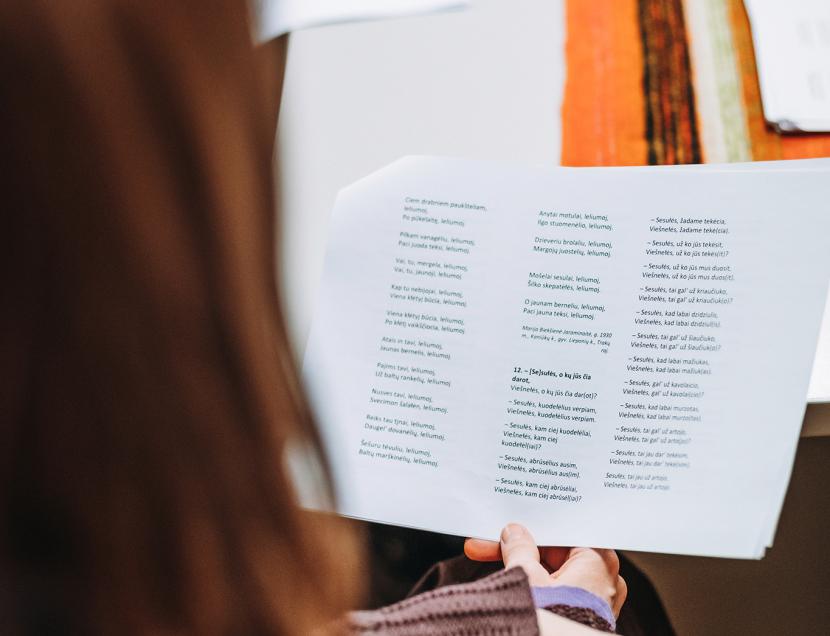 Ciem drabniem paukšteliam,
leliumoj,
Po pūkelaitę, leliumoj.
Pilkam vanageliu, leliumoj,
Paci juoda teku, leliumoj.
Vai, tu, mergela, leliumoj,
Vai, tu, jaunoji, leliumoj.
Kap tu nebijojai, leliumoj,
Viena klėtyj būcia, leliumoj.
Viena klėtyj būcia, leliumoj,
Po klėtį vaikščiocia, leliumoj.
Atais in tavi, leliumoj,
Jaunas bernelis, leliumoj.
Pajims tavi, leliumoj,
Už baltų rankelių, leliumoj.
Nusves tavi, leliumoj,
Svecimon šalalen, leliumoj.
Reiks tau tynai, leliumoj,
Daugel' dovanėlių, leliumoj.
Šešuru tėvuliu, leliumoj,
Baltų marškinėlių, leliumoj.
Anytai motulai, leliumoj,
Ilgo stuomenėlio, leliumoj.
Dzieveriu brolaliu, leliumoj,
Margojų juostelių, leliumoj.
Mošelai sesulai, leliumoj,
Šilko skepatėlės, leliumoj.
O jaunam berneliu, leliumoj,
Paci jauna teksi, leliumoj.
Marija Bekšienė-Jaraminaitė, g. 1930
m., k., gyv. Lieponių k., Trakų
raj.
12. – [Se]sulės, o kų jūs čia
darot,
Viešnelės, o kų jūs čia dar(ot)?
– Sesulės, kuodelėlius verpiam,
Viešnelės, kuodelėlius verpiam.
– Sesulės, kam ciej kuodelėliai,
Viešnelės, kam ciej
kuodelėl(iai)?
– Sesulės, abrūsėlius ausim,
Viešnelės, abrūsėlius aus(im).
– Sesulės, kam ciej abrūsėliai,
Viešnelės, kam ciej abrūsėl(iai)?
– Sesulės, žadame tekėcia,
Viešnelės, žadame tekė(cia).
– Sesulės, už ko jūs tekėsit,
Viešnelės, už ko jūs tekės(it)?
– Sesulės, už ko jūs mus duosit,
Viešnelės, už ko jūs mus duos(it).
– Sesulės, tai gal' už kriaučiuko,
Viešnelės, tai gal' už kriaučiuk(o)?
– Sesulės, kad labai dzidziulis,
Viešnelės, kad labai dzidziul(is).
– Sesulės, tai gal' už šiaučiuko,
Viešnelės, tai gal' už šiaučiuk(o)?
– Sesulės, kad labai mažiukas,
Viešnelės, kad labai mažiuk(as).
– Sesulės, gal' už kavolaicio,
Viešnelės, gal' už kavolai(cio)?
– Sesulės, kad labai murzotas,
Viešnelės, kad labai murzo(tas).
– Sesulės, tai gal' už artojo,
Viešnelės, tai gal' už arto(jo)?
– Sesulės, tai jau dar' tekėsim,
Viešnelės, tai jau dar' tekė(sim).
Sesulės, tai jau už artojo,
Viešnelės, tai jau už artojo.